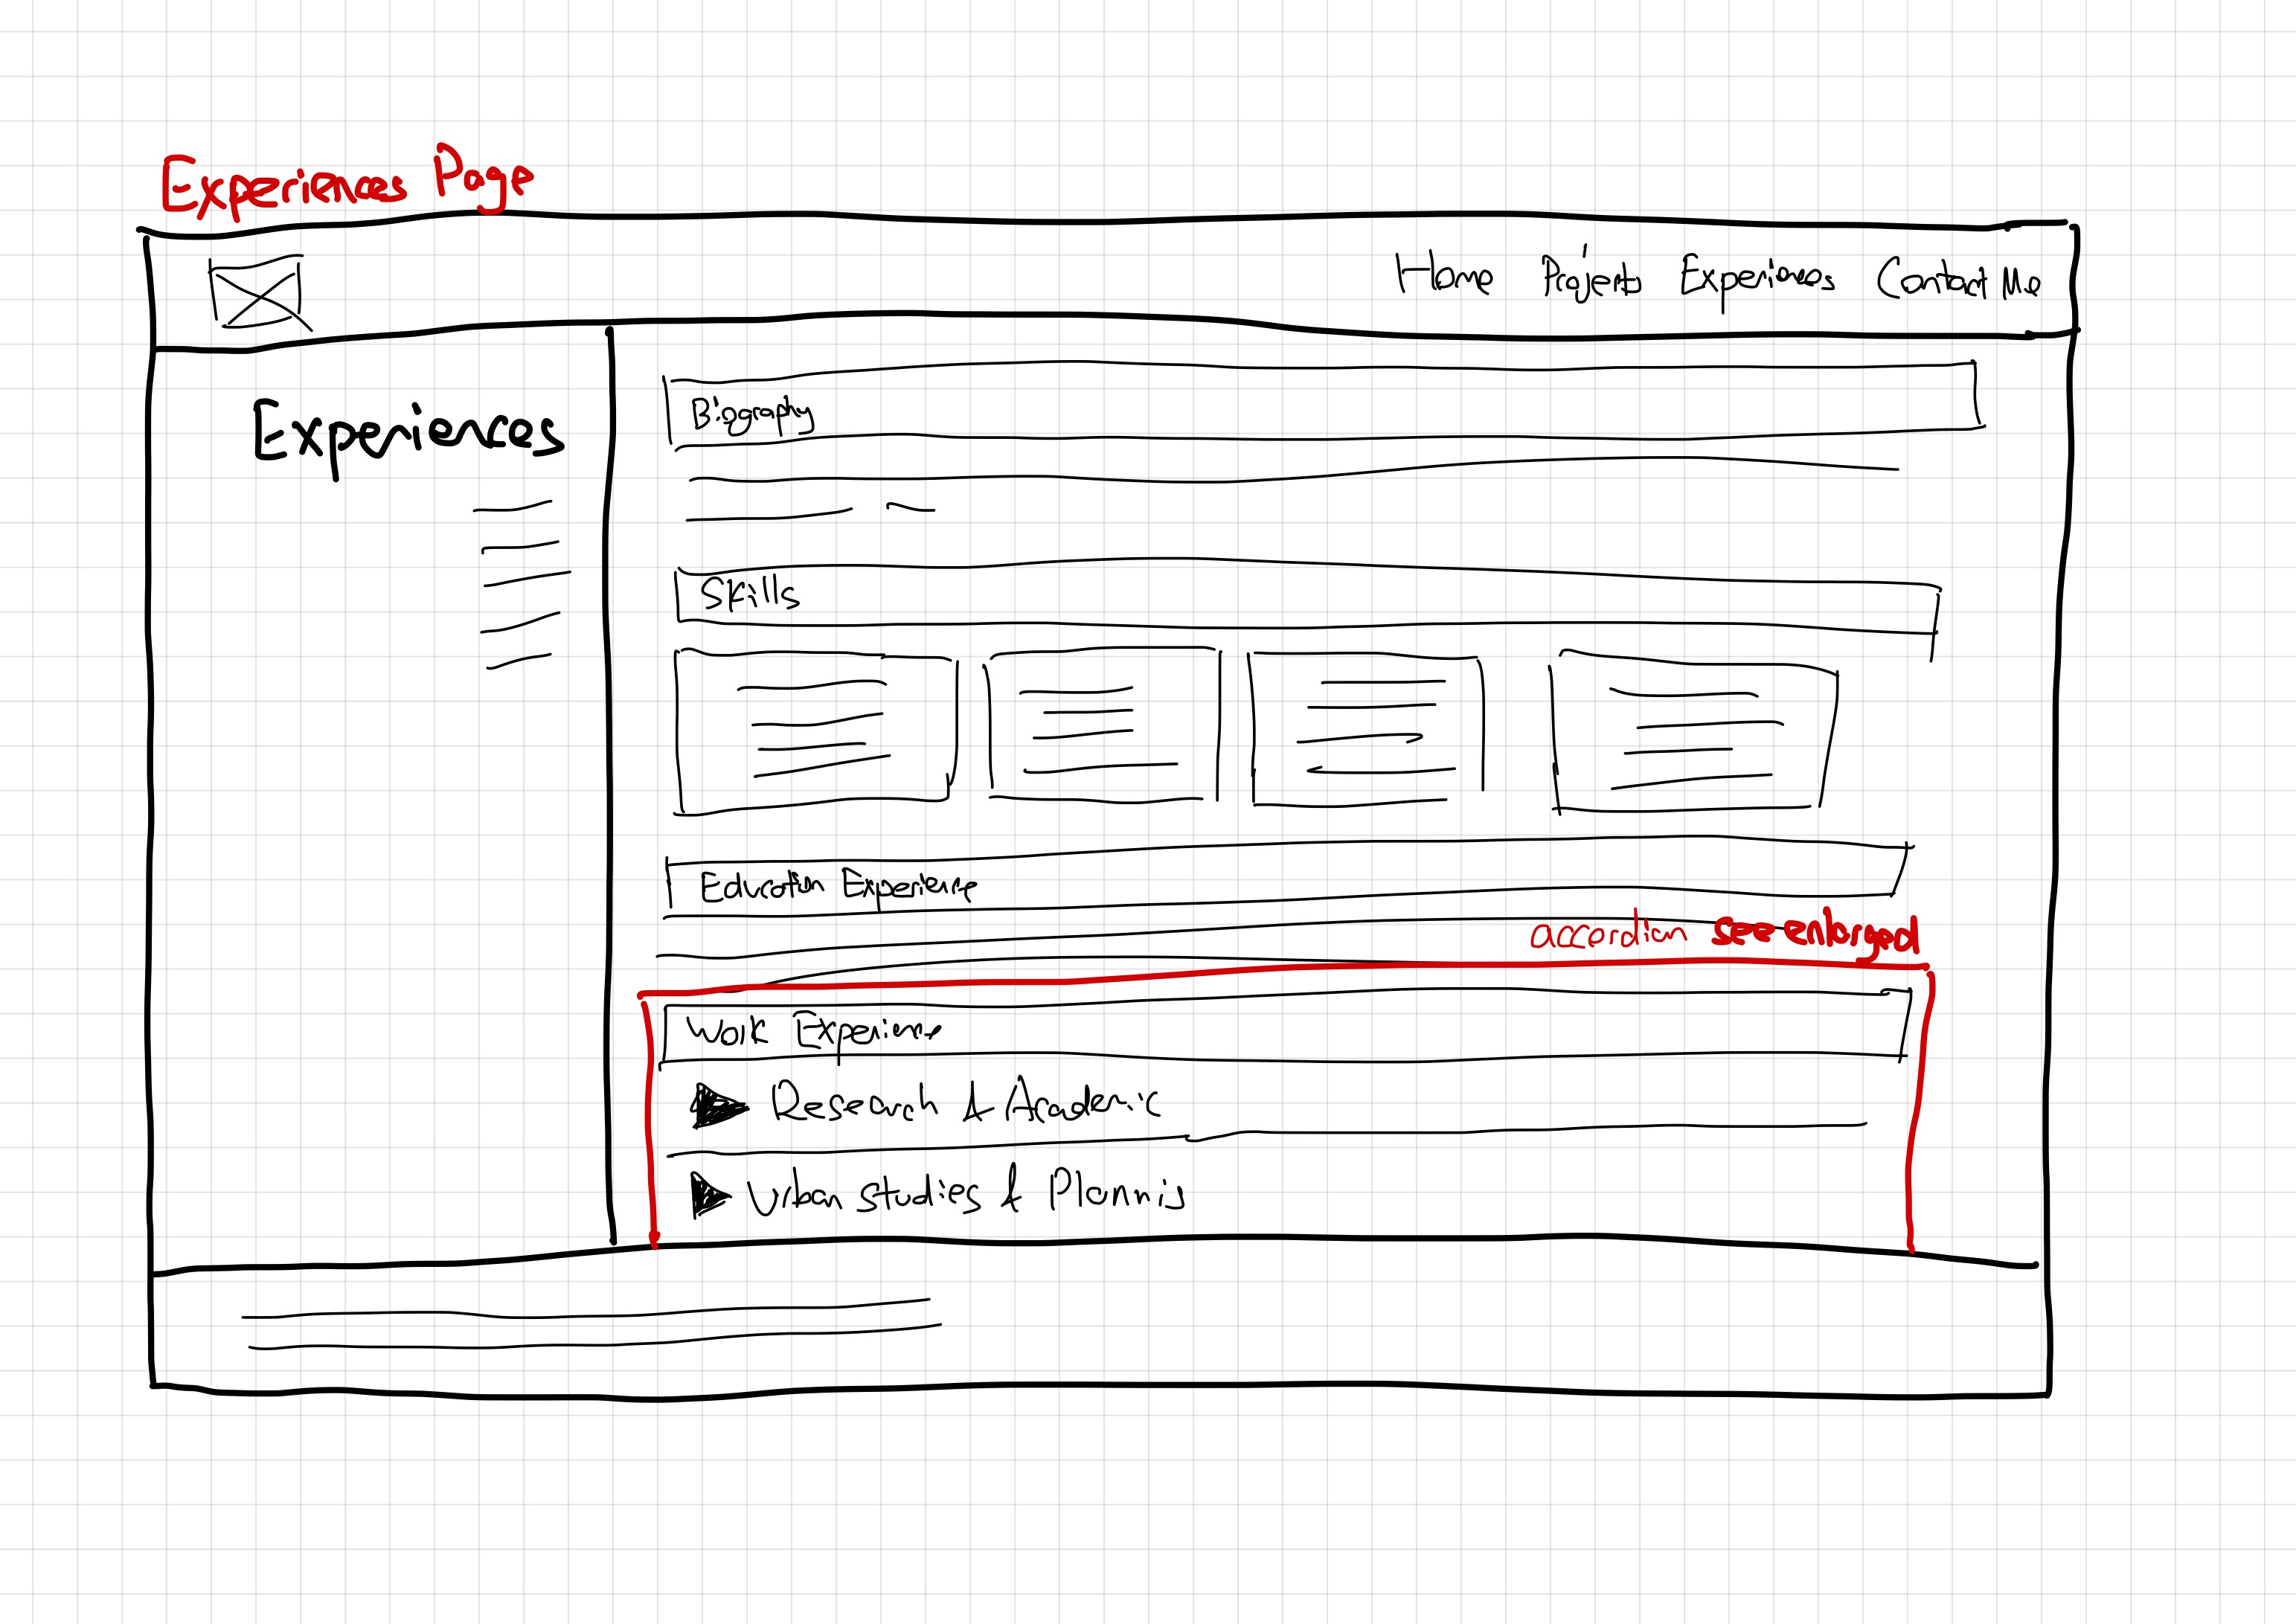 Experiences Page
Home Projects Experiences Contact Me
Experiences
Biography
Skills
Education Experience
accordian see enlarged
Work Experience
Research & Academic
Urban studies & Planning